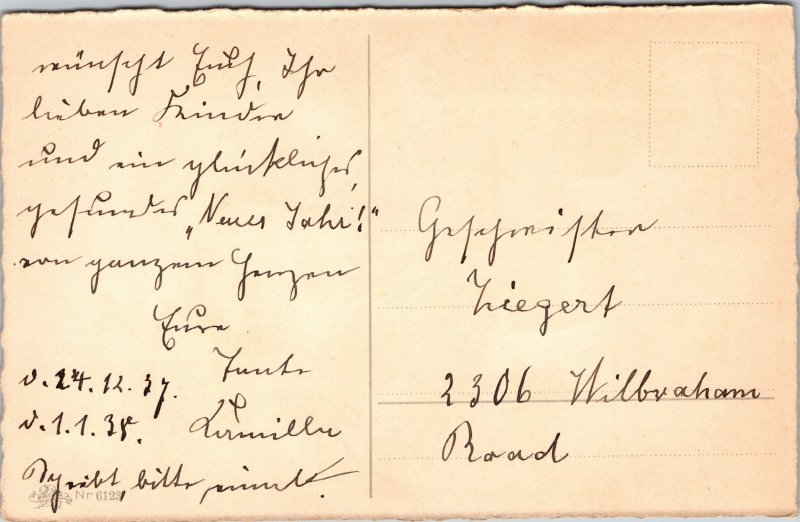 wünscht Euch, Ihr
lieben Kinder
und ein glückliches,
gesundes „Neues Jahr!“
von ganzem Herzen
Eure
Tante
Kamilla
d. 24.12.37.
d. 1.1.38.
Schreibt, bitte, einmal.
Nr. 6123
Geschwister
Ziegert
2306 Wilbraham
Road